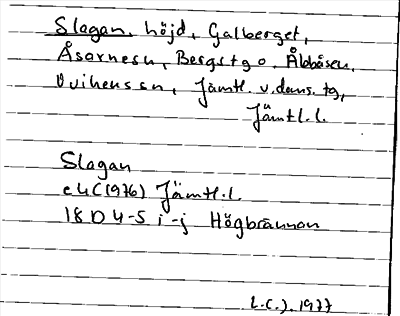 Slagan, höjd, Galberget,
Åsarnesn, Bergstgo, Åbbåsen,
Ovikens sn, Jämtl. v. doms. tg,
Jämtl. l.
Slagan
ek (1976) Jämtl. l.
18 D 4-5 i-j Högbrännan
L. C. J. 1977